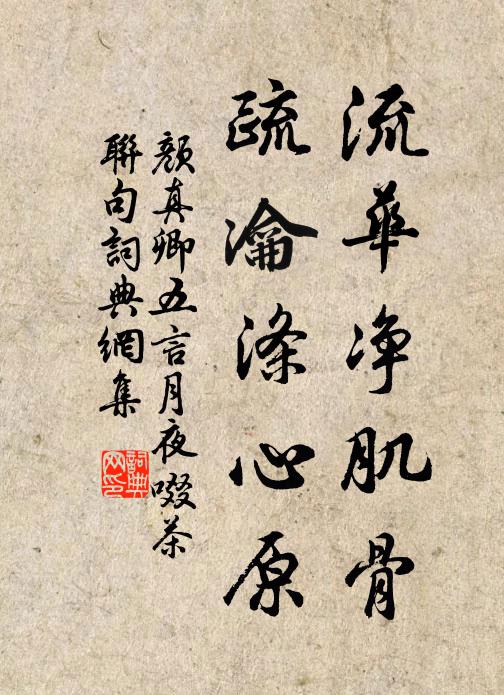 流華净肌骨
疏瀹滌心原
顏真卿五言月夜啜茶
聯句詞典網集
詞典網印